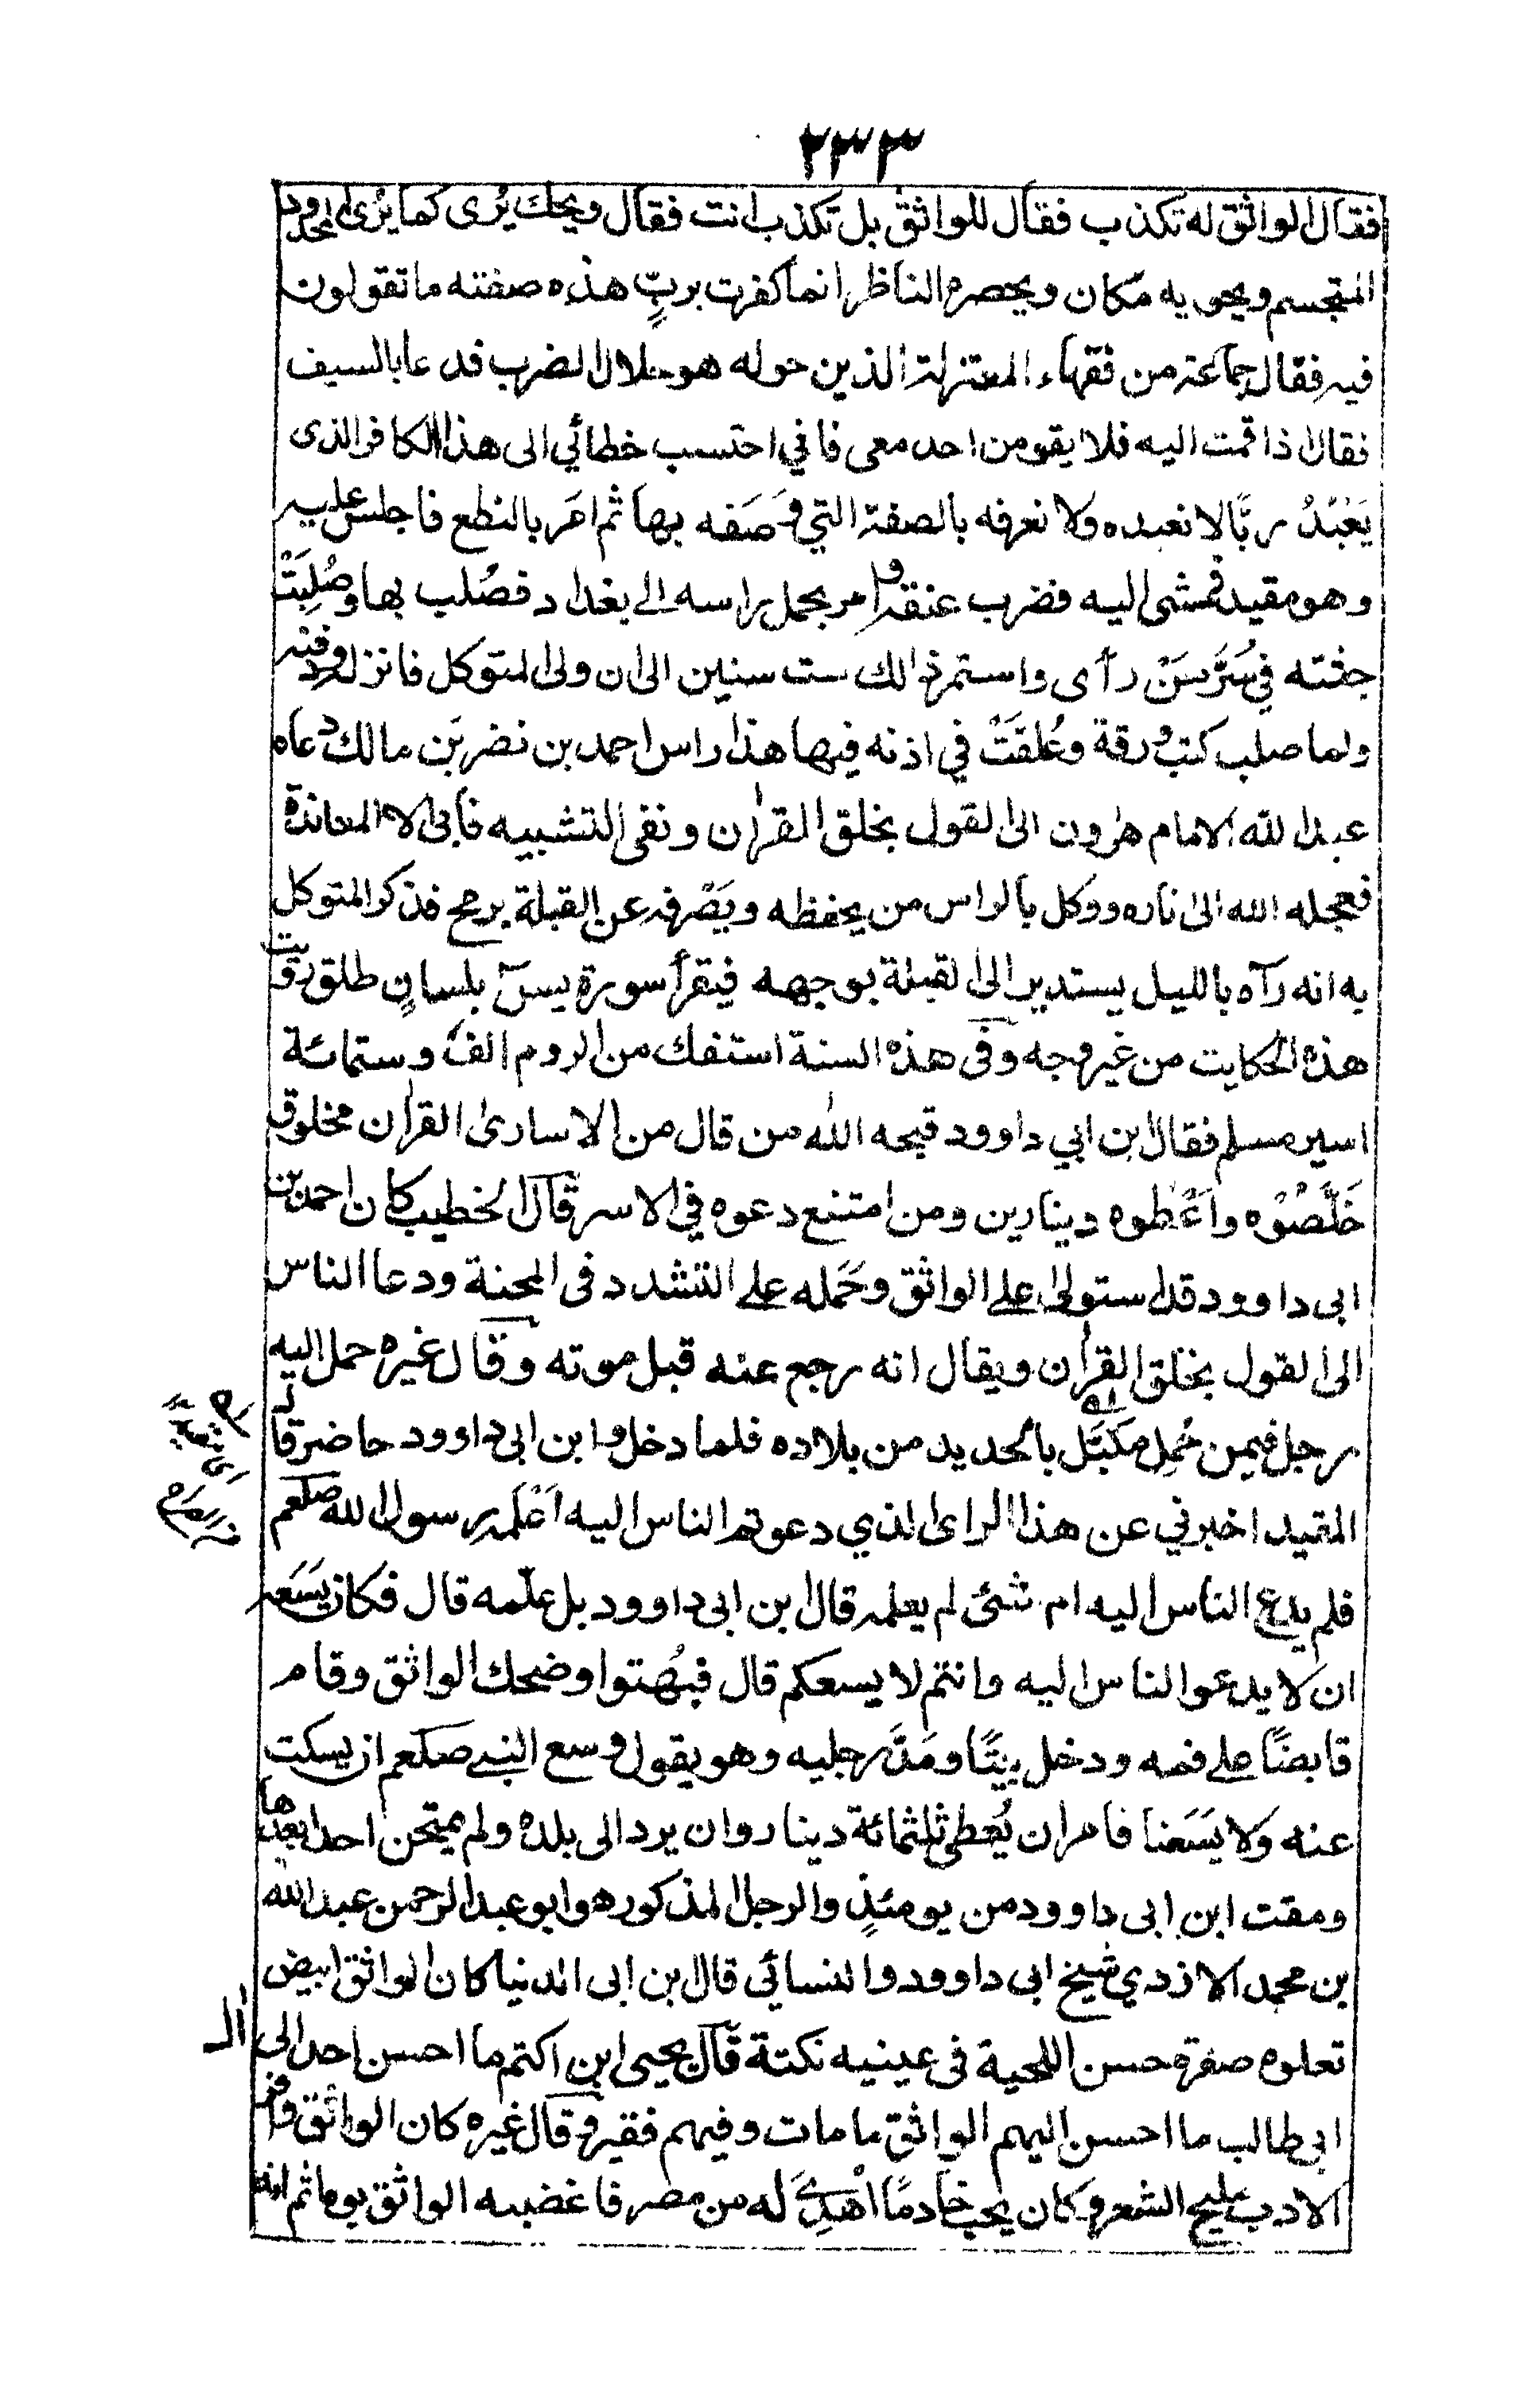 ٢٣٣
فقال الواثق له تكذب فقال للواثق بل تكذب انت فقال ويحك يُرى كما يُرى المحدود
المتجسم ويحويه مكان ويحصره الناظر انما كفرت بربٍّ هذه صفته ما تقولون
فيه فقال جماعة من فقهاء المعتزلة الذين حوله هو حلال الضرب فدعا بالسيف
فقال اذا قمت اليه فلا يقومن احد معى فاني احتسب خطائي الى هذا الكافر الذى
يَعْبُدُ ربًّا لا نعبده ولا نعرفه بالصفة التي وَصَفه بها ثم امَر بالنطع فاجلس عليه
وهو مقيد فمشى اليه فضرب عنقه وامر بحمل راسه الى بغداد فصُلب بها وصُلِبَتْ
جثته في سُرَّ مَنْ رأى واستمر ذالك ست سنين الى ان ولى المتوكل فانزله ودفنه
ولما صلب كتب ورقة وعُلقَتْ في اذنه فيها هذا راس احمد بن نضر بَن مالك دعاه
عبد الله الامام هٰرون الى القول بخلق القرٰان ونفى التشبيه فأبى الا المعاندة
فعجله الله الى ناره ووكل بالراس من يحفظه ويَصْرفه عن القبلة برمح فذكر المتوكل
به انه رآه بالليل يستدير الى القبلة بوجهه فيقرأ سورة يسٓ بلسانٍ طلق رويت
هذه الحكايت من غير وجه وفى هذه السنة استفك من الروم الف وستمائة
اسير مسلم فقال ابن ابي داوود قبحه الله من قال من الاسارىٰ القرٰان مخلوق
خَلّصُوْه واَعْطوه دينارين ومن امتنع دعوه في الاسر قال الخطيب كان احمد بن
ابى داوود قد استولى على الواثق وحَمَله على التشدد فى المحنة ودعا الناس
الى القول بخلق القرٰان ويقال انه رجع عنه قبل موته وقال غيره حمل اليه
رجل فيمن حُمِل مكبَّل بالحديد من بلاده فلما دخل وابن ابى داوود حاضر قال
المقيد اخبرني عن هذا الراى الذي دعوتم الناس اليه أعَلمه رسول الله صلعم
فلم يدع الناس اليه ام شئ لم يعلمه قال ابن ابى داوود بل علّمه قال فكان يَسَعه
ان لا يدعو الناس اليه وانتم لا يسعكم قال فبُهتوا وضحك الواثق وقام
قابضًا على فمه ودخل بيتًا ومَدَّ رجليه وهو يقول وسع النبي صلعم ان يسكت
عنه ولا يسَعَنا فامر ان يُعطى ثلثمائة دينار وان يرد الى بلده ولم يمتحن احدا بعدها
ومقت ابن ابى داوود من يومئذٍ والرجل المذكور هو ابو عبد الرحمن عبد الله
بن محمد الازدي شيخ ابى داوود والنسائي قال ابن ابى الدنيا كان الواثق ابيض
تعلوه صفرة حسن اللحية فى عينيه نكتة قال يحيى ابن اكثم ما احسن احد الى
اٰل
ابى طالب ما احسن اليهم الواثق ما مات وفيهم فقير وقال غيره كان الواثق وافر
الادب مليح الشعر وكان يحب خادمًا اُهْدِىَ له من مصر فاغضبه الواثق يوما ثم انه